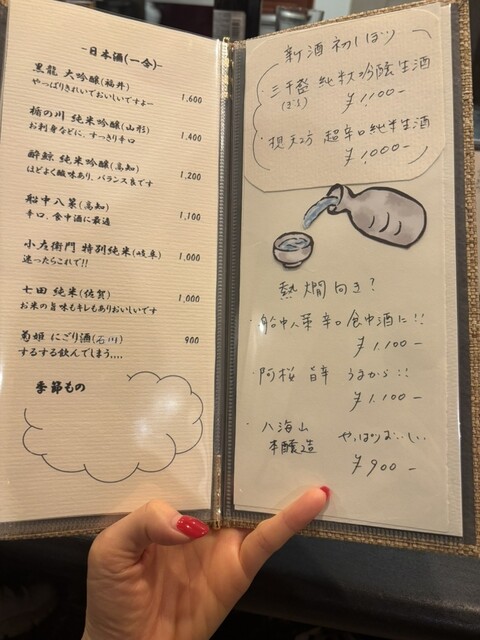 -日本酒(一合)-
黒龍 大吟醸(福井)
やっぱりきれいでおいしいですよー
1,600
楯の川 純米吟醸(山形)
お刺身などに、すっきり辛口
1,400
酔鯨 純米吟醸(高知)
ほどよく酸味あり、バランス良です
1,200
船中八策(高知)
辛口、食中酒に最適
1,100
小左衛門 特別純米(岐阜)
迷ったらこれで!!
1,000
七田 純米(佐賀)
お米の旨味もキレもありおいしいです
1,000
菊姫 にごり酒(石川)
するする飲んでしまう....
900
季節もの
新酒 初しぼり
・三千盛 純米大吟醸生酒
¥1,100-
超辛口純米生酒
¥1,000-
熱燗向き?
・船中八策 辛口 食中酒に!!
¥1,100-
・阿櫻 旨辛 うまから!!
¥1,100-
・八海山
本醸造 やっぱりおいしい
¥900-